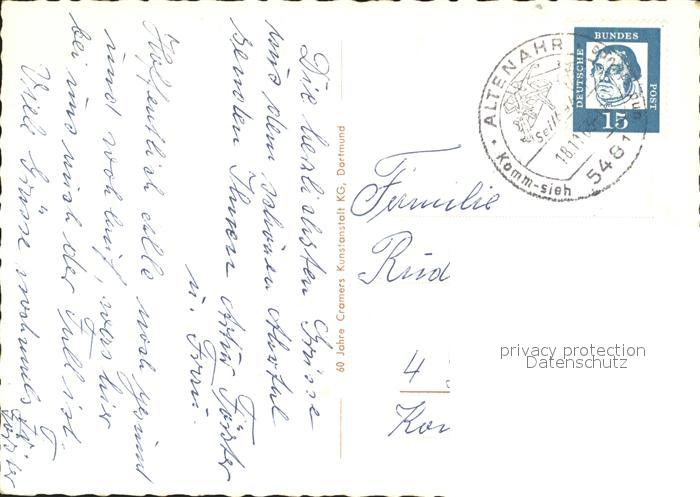 Die herzlichsten Grüsse
aus dem schönen Ahrtal
senden Ihnen Artur Förster
u. Frau.
Hoffentlich alle noch gesund
und wohlauf, was hier
bei uns auch der Fall ist.
Viele Grüsse nochmals F.
Förster
60 Jahre Cramers Kunstanstalt KG, Dortmund
Familie
Rud
4
Kor
ALTENAHR
Seilb
18.11
5481
Komm-sieh
DEUTSCHE
BUNDES
POST
15
privacy protection
Datenschutz